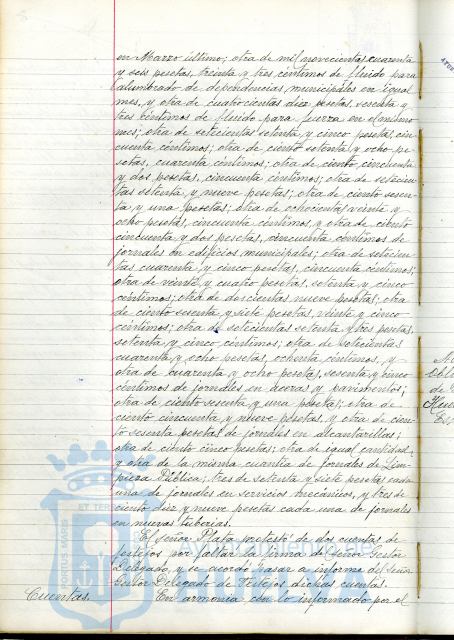 en Marzo último; otra de mil novecientas cuarenta
y seis pesetas, treinta y tres céntimos de fluido para
alumbrado de dependencias municipales en igual
mes, y otra de cuatrocientas diez pesetas, sesenta y
tres céntimos de fluido para fuerza en el mismo
mes; otra de setecientas setenta y cinco pesetas cin-
cuenta céntimos; otra de ciento setenta y ocho pe-
setas, cuarenta céntimos; otra de ciento cincuenta
y dos pesetas, cincuenta céntimos; otra de setecien-
tas setenta y nueve pesetas; otra de ciento sesen-
ta y una pesetas; otra de ochocientas veinte y
ocho pesetas, cincuenta céntimos, y otra de ciento
cincuenta y dos pesetas, cincuenta céntimos de
jornales en edificios municipales; otra de setecien-
tas cuarenta y cinco pesetas, cincuenta céntimos;
otra de veinte y cuatro pesetas, setenta y cinco
céntimos; otra de doscientas nueve pesetas; otra
de ciento sesenta y siete pesetas, veinte y cinco
céntimos; otra de setecientas setenta y tres pesetas,
setenta y cinco céntimos; otra de setecientas
cuarenta y ocho pesetas, ochenta céntimos, y
otra de cuarenta y ocho pesetas, sesenta y cinco
céntimos de jornales en aceras y pavimentos;
otra de ciento sesenta y una pesetas; otra de
ciento cincuenta y nueve pesetas, y otra de cien-
to sesenta pesetas de jornales en alcantarillas;
otra de ciento cinco pesetas; otra de igual cantidad,
y otra de la misma cuantía de jornales de Lim-
pieza Pública; tres de setenta y siete pesetas cada
una de jornales en servicios mecánicos, y tres de
ciento diez y nueve pesetas cada una de jornales
en nuevas tuberías.
El Señor Plata protestó de dos cuentas de
festejos por faltar la firma del Señor Gestor
Delegado, y se acordó pasar a informe del Señor
Gestor Delegado de Festejos dichas cuentas.
Cuentas. En armonía con lo informado por el